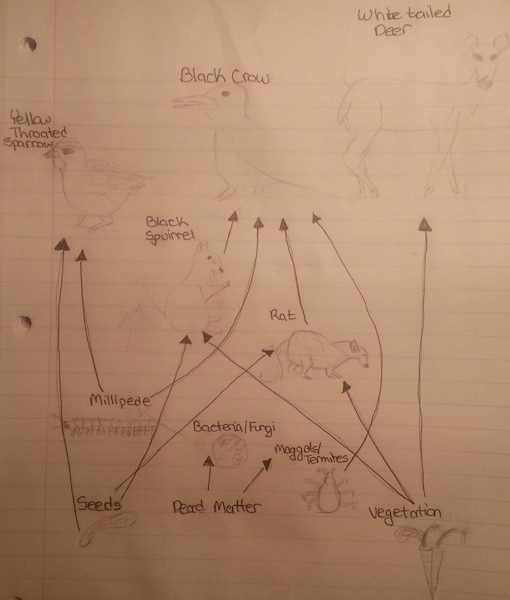 White tailed
Deer
Black Crow
Yellow
Throated
Sparrow
Black
Squirrel
Rat
Millipede
Bacteria/Fungi
Maggots/
Termites
Seeds
Dead Matter
Vegetation